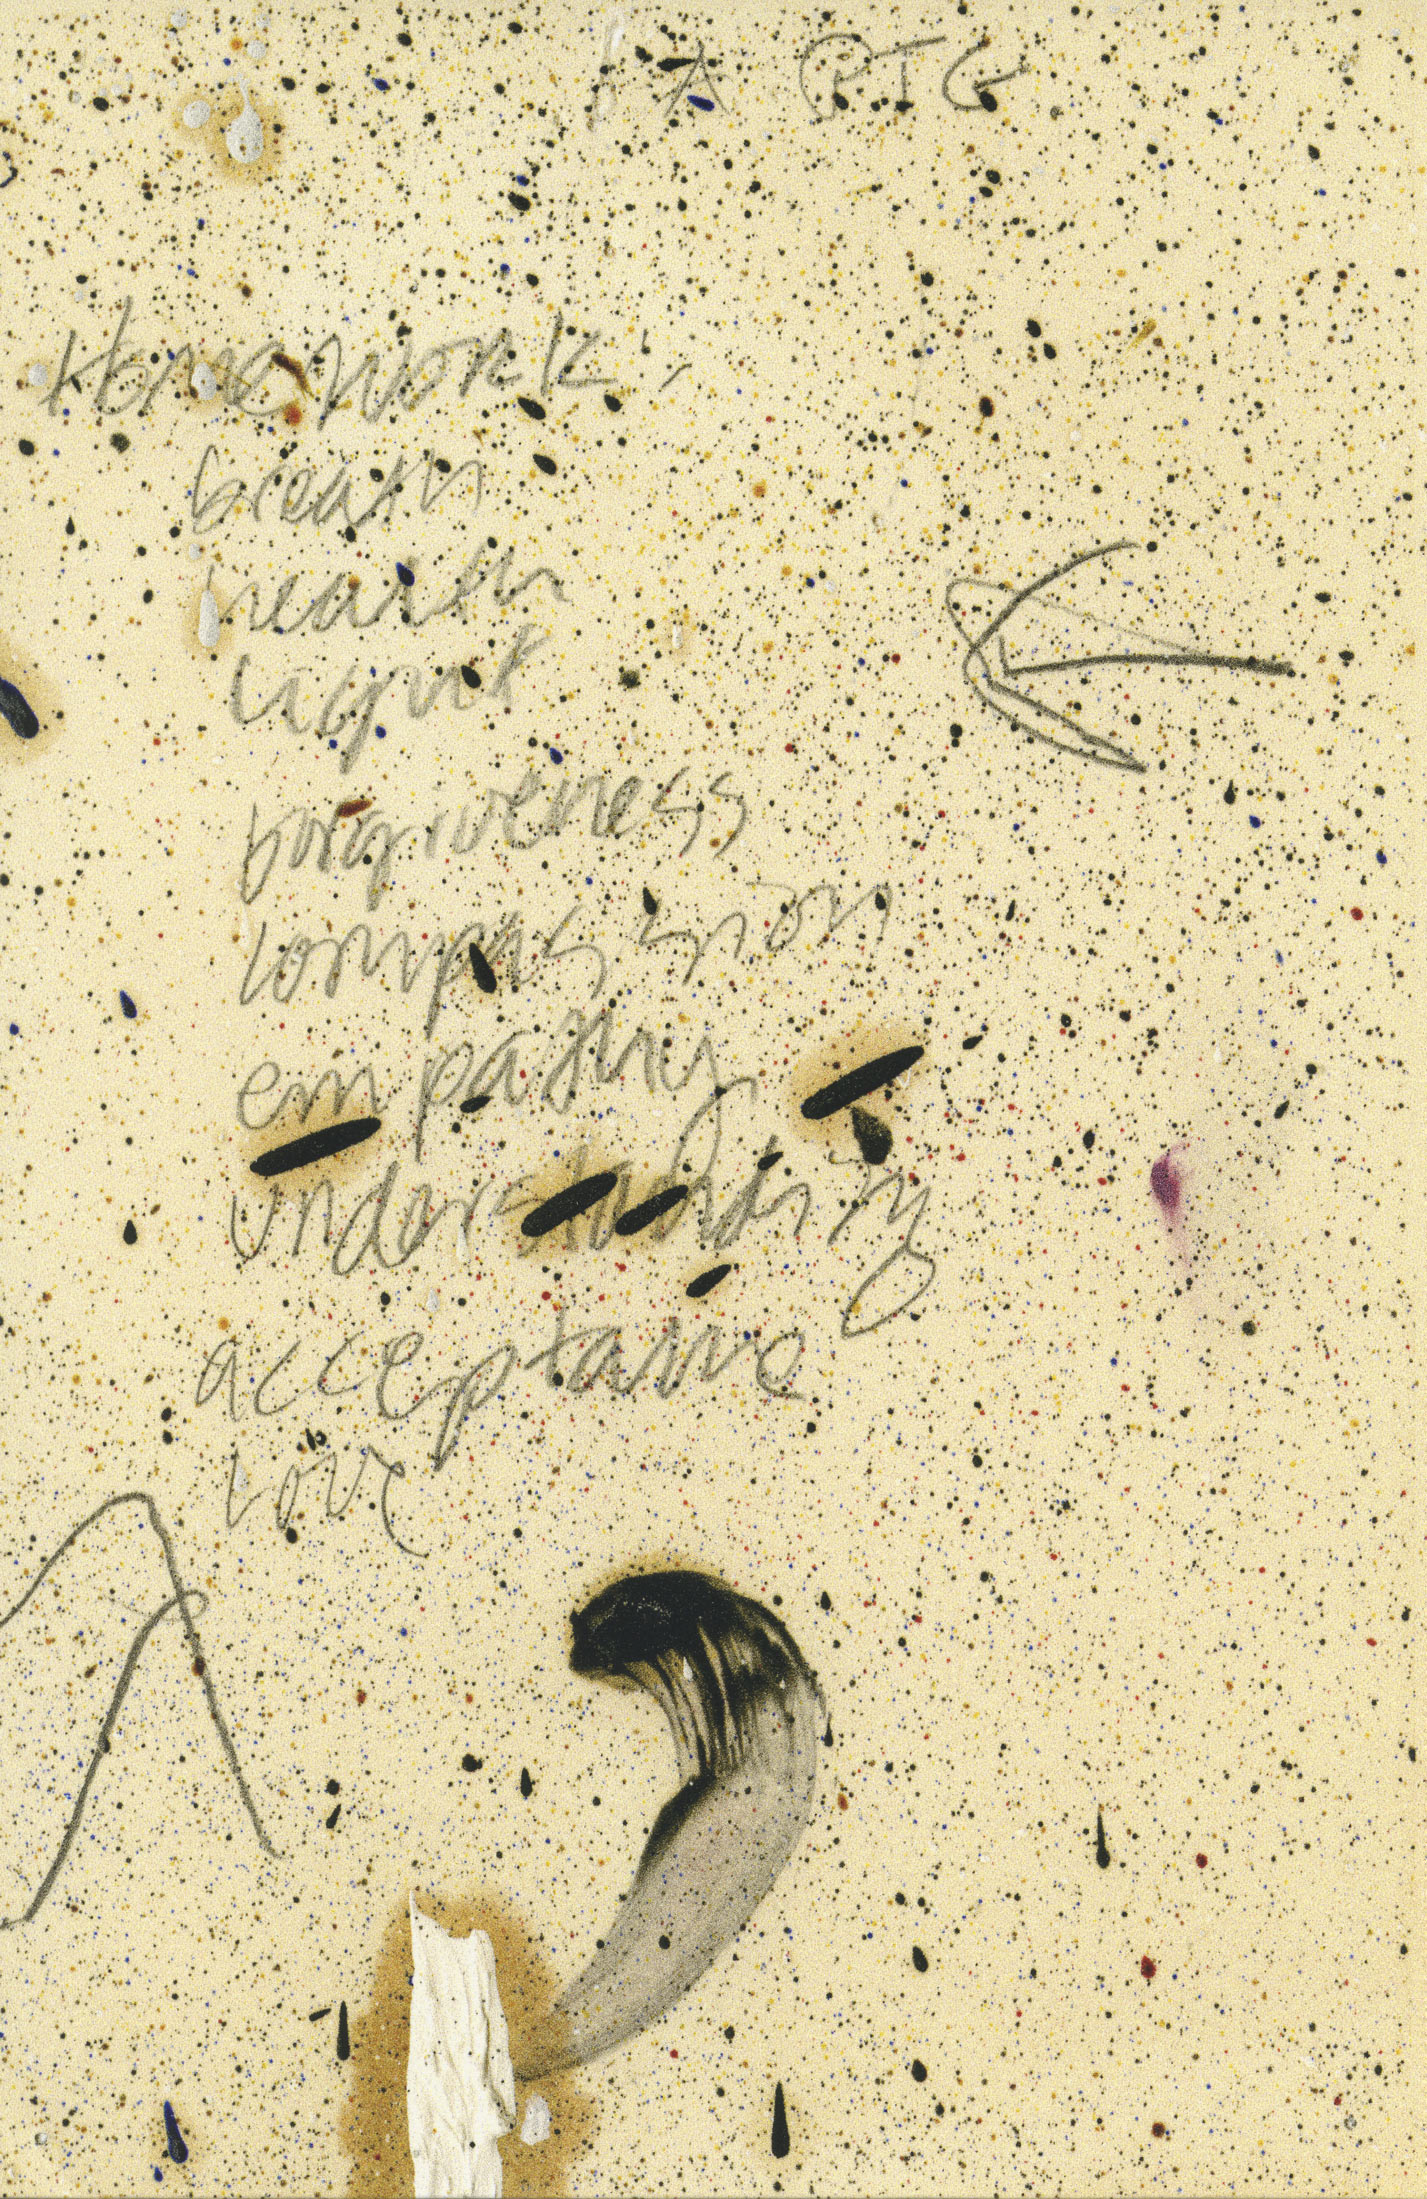 Homework
breath
health
light
forgiveness
compassion
empathy
understanding
acceptance
love